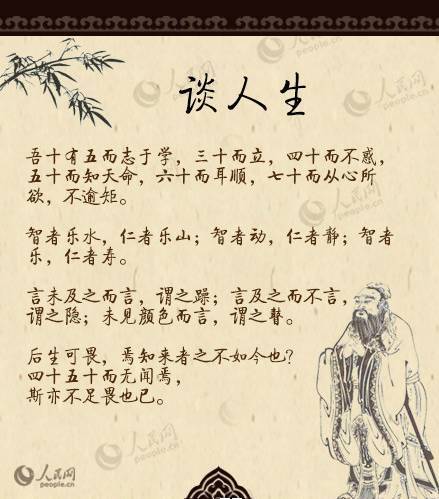 谈人生
吾十有五而志于学，三十而立，四十而不惑，
五十而知天命，六十而耳顺，七十而从心所
欲，不逾矩。
智者乐水，仁者乐山；智者动，仁者静；智者
乐，仁者寿。
言未及之而言，谓之躁；言及之而不言，
谓之隐；未见颜色而言，谓之瞽。
后生可畏，焉知来者之不如今也？
四十五十而无闻焉，
斯亦不足畏也已。
人民网
people.cn